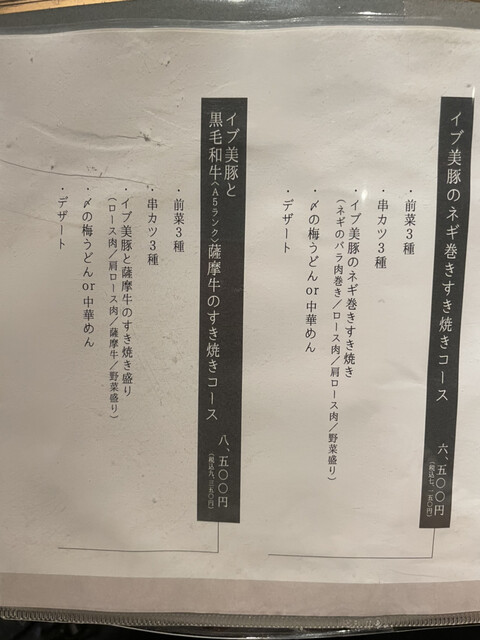 イブ美豚のネギ巻きすき焼きコース
六、五〇〇円
(税込七、一五〇円)
・前菜3種
・串カツ3種
・イブ美豚のネギ巻きすき焼き
(ネギのバラ肉巻き/ロース肉/肩ロース肉/野菜盛り)
・〆の梅うどんor中華めん
・デザート
イブ美豚と
黒毛和牛〈A5ランク〉薩摩牛のすき焼きコース
八、五〇〇円
(税込九、三五〇円)
・前菜3種
・串カツ3種
・イブ美豚と薩摩牛のすき焼き盛り
(ロース肉/肩ロース肉/薩摩牛/野菜盛り)
・〆の梅うどんor中華めん
・デザート